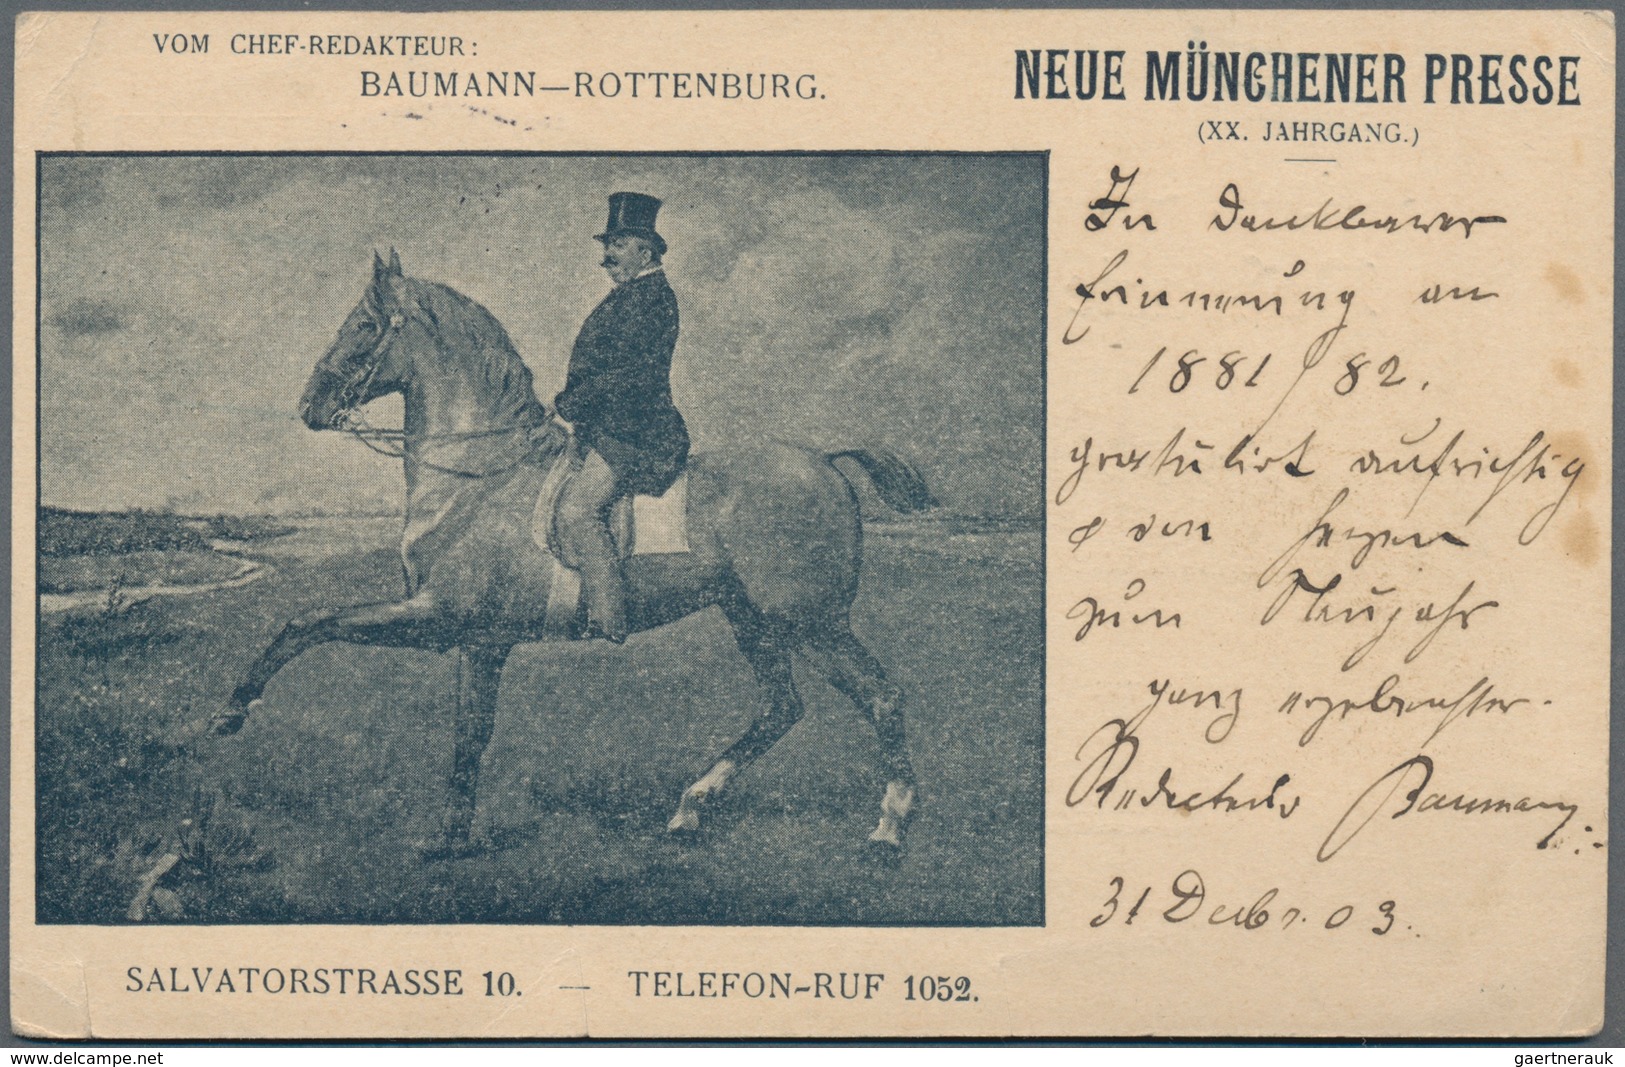 VOM CHEF-REDAKTEUR:
BAUMANN—ROTTENBURG.
NEUE MÜNCHENER PRESSE
(XX. JAHRGANG.)
In dankbarer
Erinnerung an
1881/82.
gratulirt aufrichtig
& von Herzen
zum Neujahr
ganz ergebenster
Redacteur Baumann
31 Decbr. 03.
SALVATORSTRASSE 10. — TELEFON-RUF 1052.
www.delcampe.net
gaertnerauk